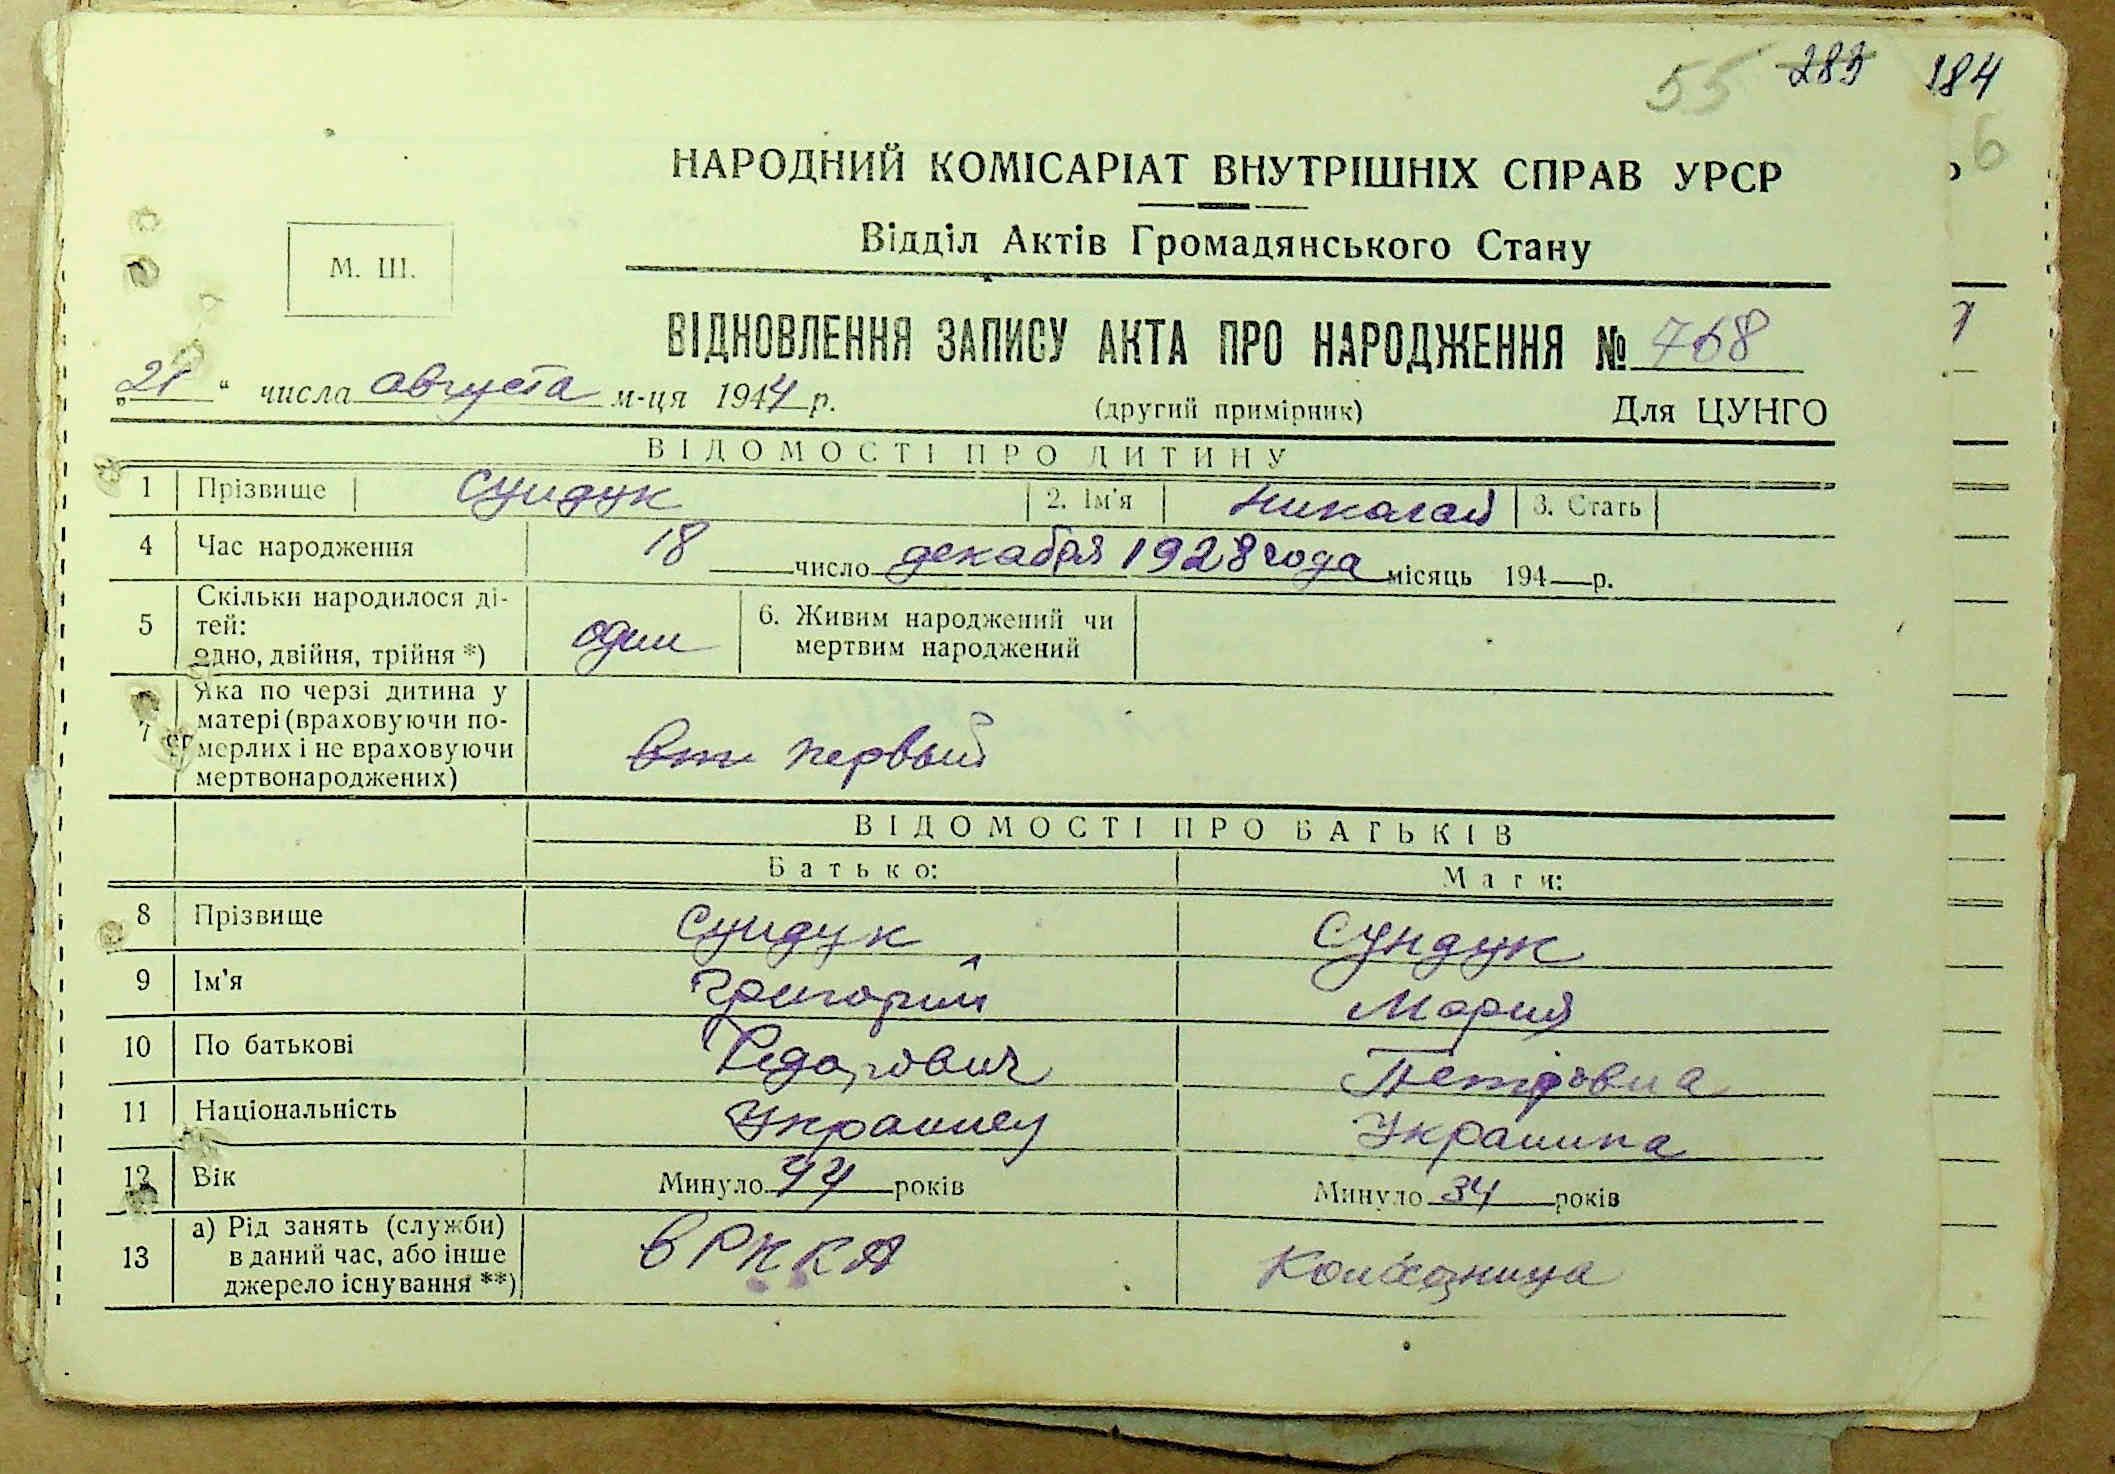 55 283 184
6
НАРОДНИЙ КОМІСАРІАТ ВНУТРІШНІХ СПРАВ УРСР
Відділ Актів Громадянського Стану
М. Ш.
ВІДНОВЛЕННЯ ЗАПИСУ АКТА ПРО НАРОДЖЕННЯ № 768
„21“ числа августа м-ця 1944 р. (другий примірник) Для ЦУНГО
ВІДОМОСТІ ПРО ДИТИНУ
1 Прізвище Сундук 2. Ім'я Николай 3. Стать
4 Час народження 18 число декабря 1928 года місяць 194 р.
5 Скільки народилося ді-
тей:
одно, двійня, трійня *) один 6. Живим народжений чи
мертвим народжений
7 Яка по черзі дитина у
матері (враховуючи по-
мерлих і не враховуючи
мертвонароджених) вт первый
ВІДОМОСТІ ПРО БАТЬКІВ
Батько: Мати:
8 Прізвище Сундук Сундук
9 Ім'я Григорий Мария
10 По батькові Федорович Петровна
11 Національність Украинец Украинка
12 Вік Минуло 44 років Минуло 34 років
13 а) Рід занять (служби)
в даний час, або інше
джерело існування **) в РККА Колхозница